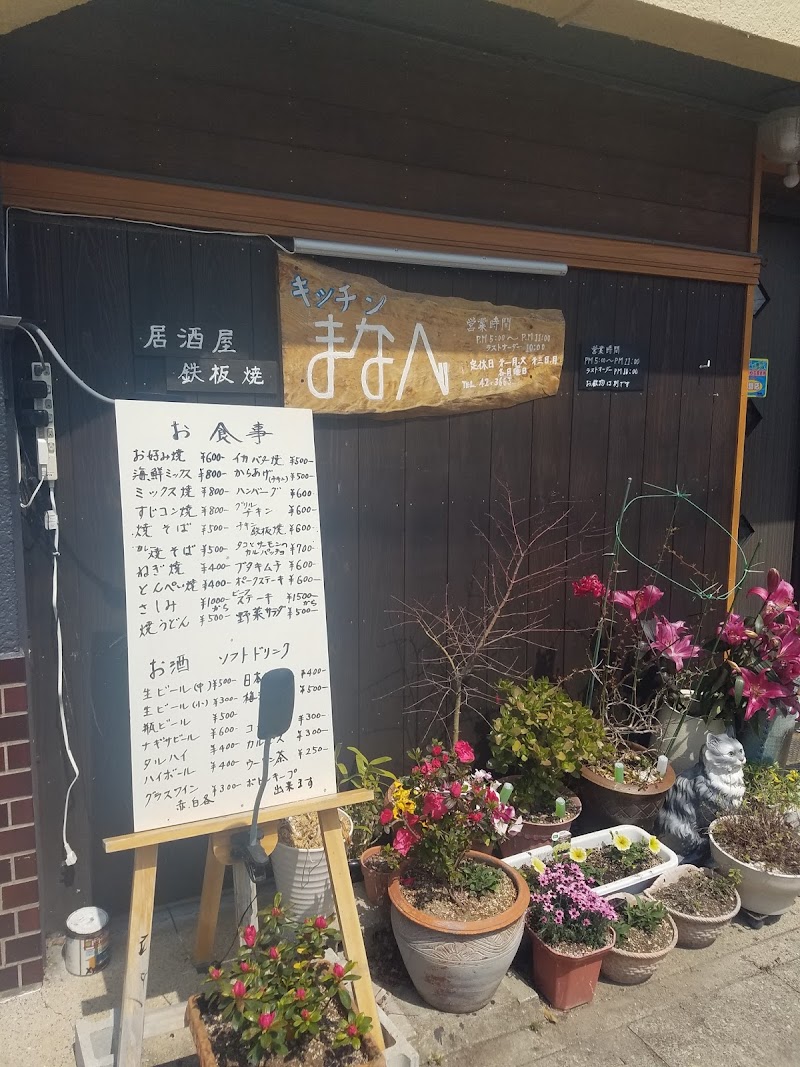 居酒屋
鉄板焼
キッチン
まなべ
営業時間
P.M 5:00〜P.M 11:00
ラストオーダー 10:00
営業時間
お食事
お好み焼 ¥600- イカバター焼 ¥500-
海鮮ミックス ¥800- からあげ ¥500-
ミックス焼 ¥800- ハンバーグ ¥600
すじコン焼 ¥800- グリルチキン ¥600-
焼そば ¥500- チキン鉄板焼 ¥600-
焼そば ¥500- タコとサーモンのカルパッチョ ¥700-
ねぎ焼 ¥400- ブタキムチ ¥600-
とんぺい焼 ¥400- ポークステーキ ¥600-
さしみ ¥1000から ビーフステーキ ¥1500から
焼うどん ¥500- 野菜サラダ ¥500-
お酒 ソフトドリンク
生ビール(中) ¥500- 日本 ¥400-
生ビール(小) ¥300- 梅 ¥500-
瓶ビール ¥500
¥600- コ ¥300-
タルハイ ¥400- カル ス ¥300-
ハイボール ¥400- ウーロン茶 ¥250-
グラスワイン ¥300- ボトルキープ
赤.白各 出来ます